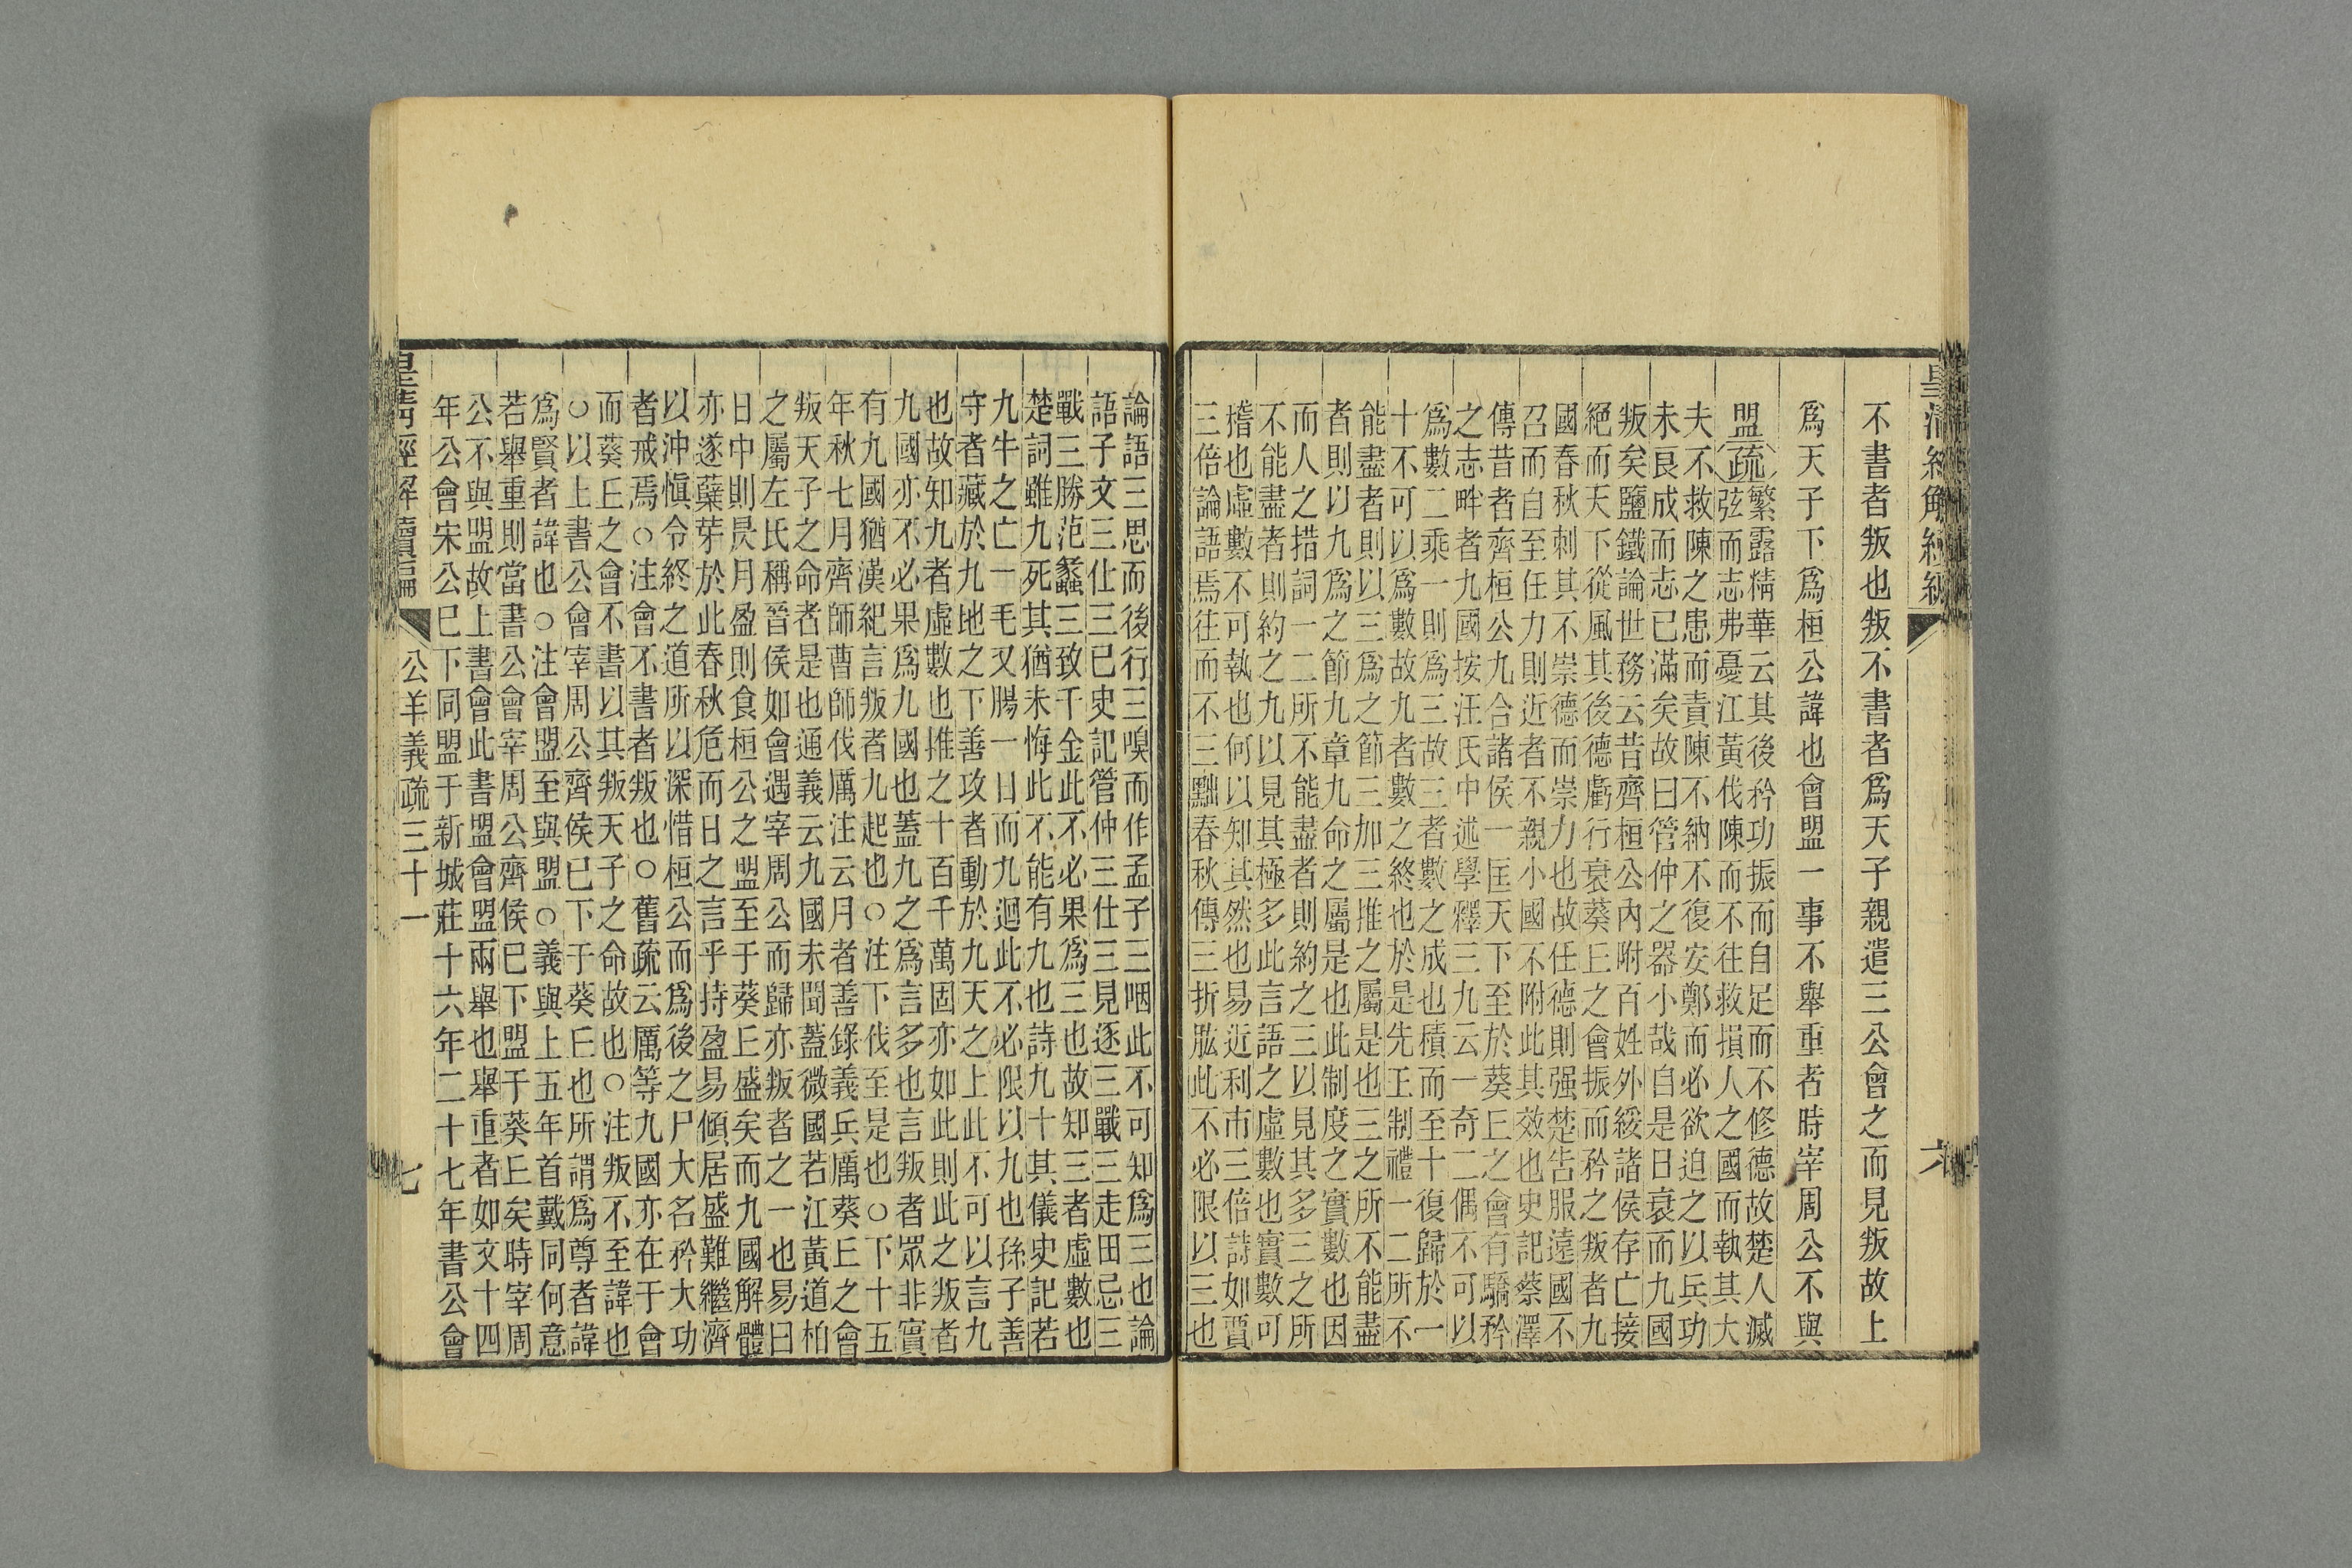 皇清經解續編
六
不書者叛也叛不書者爲天子親遣三公會之而見叛故上
爲天子下爲桓公諱也會盟一事不舉重者時宰周公不與
盟
疏
繁露精華云其後矜功振而自足而不修德故楚人滅
弦而志弗憂江黃伐陳而不往救損人之國而執其大
夫不救陳之患而責陳不納不復安鄭而必欲迫之以兵功
未良成而志已滿矣故曰管仲之器小哉自是日衰而九國
叛矣鹽鐵論世務云昔齊桓公內附百姓外綏諸侯存亡接
絕而天下從風其後德虧行衰葵丘之會振而矜之叛者九
國春秋刺其不崇德而崇力也故任德則强楚告服遠國不
召而自至任力則近者不親小國不附此其效也史記蔡澤
傳昔者齊桓公九合諸侯一匡天下至於葵丘之會有驕矜
之志畔者九國按汪氏中述學釋三九云一奇二偶不可以
爲數二乘一則爲三故三者數之成也積而至十復歸於一
十不可以爲數故九者數之終也於是先王制禮一二所不
能盡者則以三爲之節三加三推之屬是也三之所不能盡
者則以九爲之節九章九命之屬是也此制度之實數也因
而人之措詞一二所不能盡者則約之三以見其多三之所
不能盡者則約之九以見其極多此言語之虛數也實數可
稽也虛數不可執也何以知其然也易近利市三倍詩如賈
三倍論語焉往而不三黜春秋傳三折肱此不必限以三也
論語三思而後行三嗅而作孟子三咽此不可知爲三也論
語子文三仕三已史記管仲三仕三見逐三戰三走田忌三
戰三勝范蠡三致千金此不必果爲三也故知三者虛數也
楚詞雖九死其猶未悔此不能有九也詩九十其儀史記若
九牛之亡一毛又腸一日而九迴此不必限以九也孫子善
守者藏於九地之下善攻者動於九天之上此不可以言九
也故知九者虛數也推之十百千萬固亦如此則此之叛者
九國亦不必果爲九國也蓋九之爲言多也言叛者眾非實
有九國猶漢紀言叛者九起也○注下伐至是也○下十五
年秋七月齊師曹師伐厲注云月者善錄義兵厲葵丘之會
叛天子之命者是也通義云九國未聞蓋微國若江黃道柏
之屬左氏稱晉侯如會遇宰周公而歸亦叛者之一也易曰
日中則昃月盈則食桓公之盟至于葵丘盛矣而九國解體
亦遂蘖芽於此春秋危而日之言乎持盈易傾居盛難繼濟
以沖愼令終之道所以深惜桓公而爲後之尸大名矜大功
者戒焉○注會不書者叛也○舊疏云厲等九國亦在于會
而葵丘之會不書以其叛天子之命故也○注叛不至諱也
○以上書公會宰周公齊侯已下于葵丘也所謂爲尊者諱
爲賢者諱也○注會盟至與盟○義與上五年首戴同何意
若舉重則當書公會宰周公齊侯已下盟于葵丘矣時宰周
公不與盟故上書會此書盟會盟兩舉也舉重者如文十四
年公會宋公已下同盟于新城莊十六年二十七年書公會
皇清經解續編
公羊義疏三十一
七